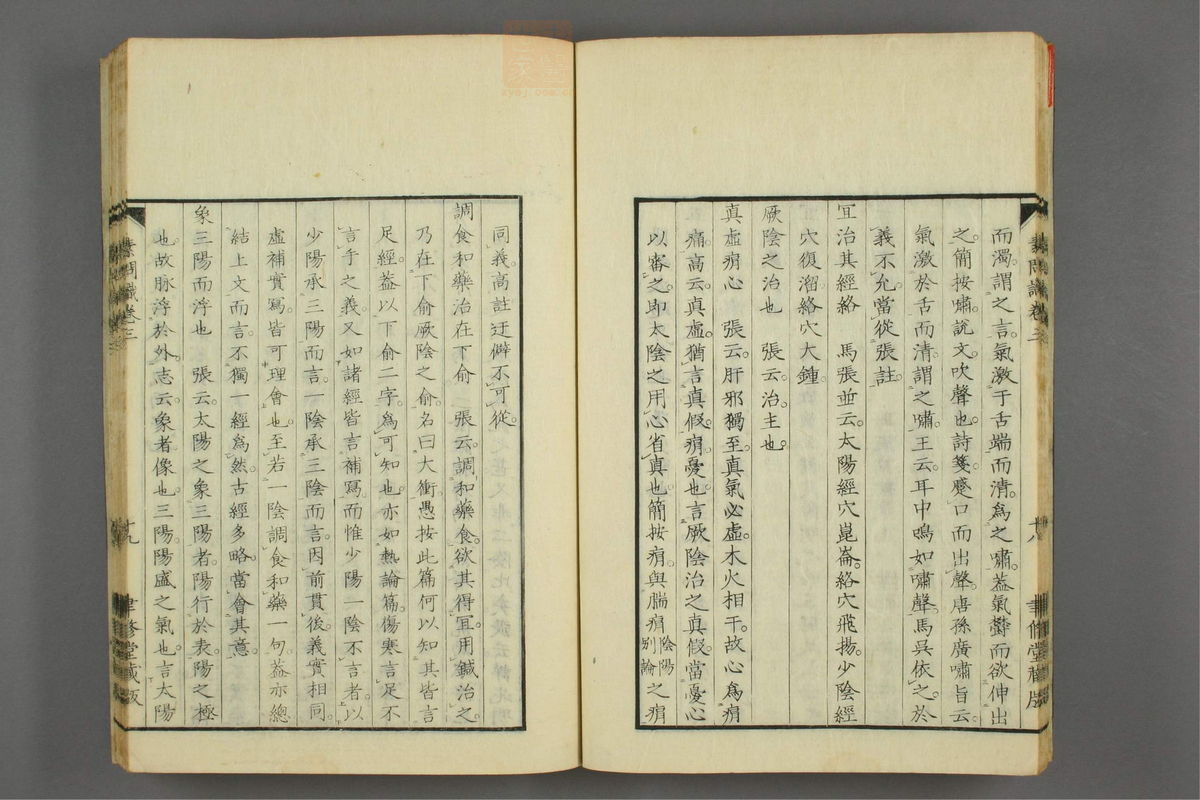 而濁。謂之言。氣激于舌端而清。爲之嘯。蓋氣鬱而欲伸出
之。簡按嘯。說文。吹聲也。詩箋。蹙口而出聲。唐孫廣嘯旨云。
氣激於舌而清。謂之嘯。王云。耳中鳴如嘯聲。馬吳依之。於
義不允。當從張註。
宜治其經絡　馬張並云。太陽經穴崑崙。絡穴飛揚。少陰經
穴復溜。絡穴大鍾。
厥陰之治也　張云。治。主也。
真虛㾓心　張云。肝邪獨至。真氣必虛。木火相干。故心爲㾓
痛。高云。真虛。猶言真假。㾓。憂也。言厥陰治之真假。當憂心
以審之。即太陰之用心省真也。簡按㾓。與腨㾓陰陽別論之㾓
素問識卷三
十八
聿修堂藏版
同義。高註迂僻。不可從。
調食和藥治在下俞　張云。調和藥食。欲其得宜。用鍼治之。
乃在下俞。厥陰之俞。名曰大衝。愚按此篇。何以知其皆言
足經。蓋以下俞二字。爲可知也。亦如熱論篇。傷寒言足不
言手之義。又如諸經皆言補寫。而惟少陽一陰不言者。以
少陽承三陽而言。一陰承三陰而言。因前貫後。義實相同。
虛補實寫。皆可理會也。至若一陰調食和藥一句。蓋亦總
結上文而言。不獨一經爲然。古經多略。當會其意。
象三陽而浮也　張云。太陽之象三陽者。陽行於表。陽之極
也。故脉浮於外。志云。象者。像也。三陽。陽盛之氣也。言太陽
素問識卷三
十九
聿修堂藏版